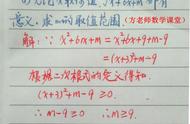 意义,求m的取值范围。(方老师数学课堂)
解:∵ x²+6x+m = x²+6x+9+m-9
=(x+3)²+m-9
根据二次根式的定义得知
(x+3)²+m-9≥0.
∴m-9≥0 ∴m≥9.